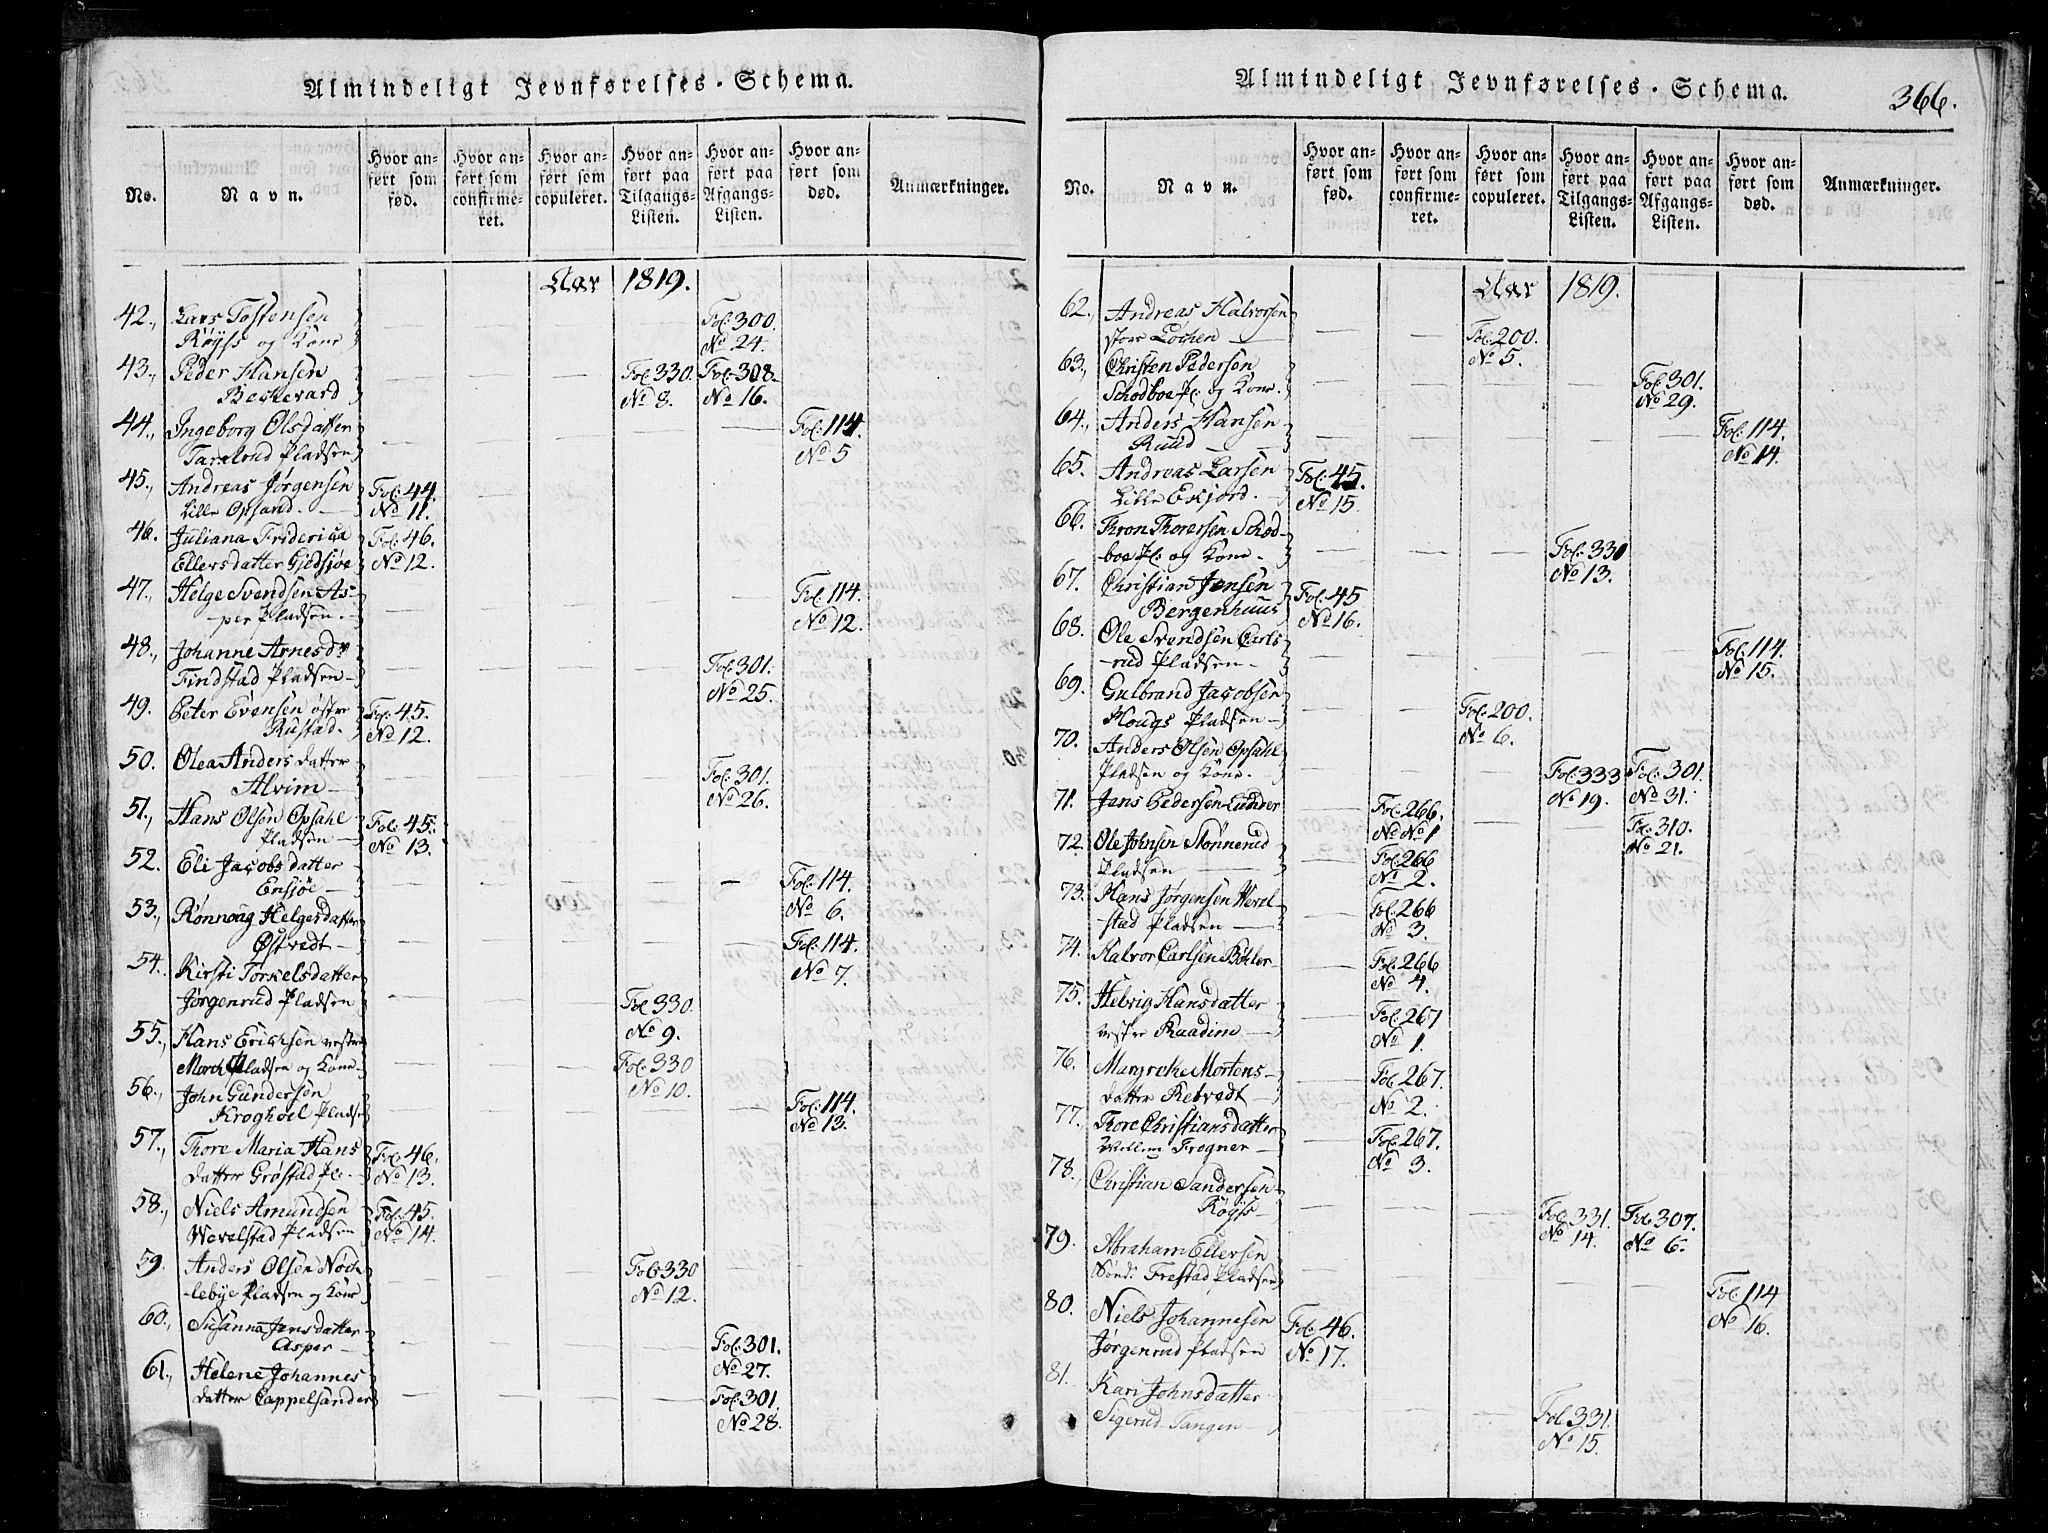 Almindeligt Jevnførelses-Schema.
No. Navn. Hvor anført som fød. Hvor anført som confirmeret. Hvor anført som copuleret. Hvor anført paa Tilgangs-Listen. Hvor anført paa Afgangs-Listen. Hvor anført som død. Anmærkninger.
Aar 1819.
42., Lars Tostensen
Røyss og Kone Fol: 300.
No 24.
43., Peder Hansen Fol: 330. Fol: 308.
Beskerard No 8. No 16.
44., Ingeborg Olsdatter Fol: 114.
Taralrud Pladsen No 5
45., Andreas Jørgensen Fol: 44.
Lille Opsand. No 11.
46. Juliana Fridericia Fol: 46.
Ellersdatter Gjedsjøe No 12.
47., Helge Svendsen As- Fol: 114.
-per Pladsen. No 12.
48., Johanne Arnesdr Fol: 301.
Findstad Pladsen No 25.
49. Peter Evensen østre Fol: 45.
Rustad. No 12.
50. Olea Anders datter Fol: 301.
Alvim No 26.
51., Hans Olsen Opsahl Fol: 45.
Pladsen No 13.
52. Eli Jacobsdatter Fol: 114.
Ensjøe No 6.
53., Rønnoug Helgesdatter Fol: 114.
Østvedt No 7.
54. Kirsti Torkelsdatter Fol: 330.
Jørgenrud Pladsen No 9.
55., Hans Erichsen vestre Fol: 330
Morch Pladsen og Kone No 10.
56., John Gundersen Fol: 114.
Kroghoel Pladsen No 13.
57., Thore Maria Hans Fol: 46.
datter Grøstad Pl: No 13.
58., Niels Amundsen Fol: 45.
Wevelstad Pladsen No 14.
59. Anders Olsen Nøch Fol: 330
-lebye Pladsen og Kone No 12.
60., Susanna Jensdatter Fol: 301.
Asper No 27.
61., Helene Johannes Fol: 301.
datter Cappelsander No 28.
Almindeligt Jevnførelses-Schema. 366.
No. Navn. Hvor anført som fød. Hvor anført som confirmeret. Hvor anført som copuleret. Hvor anført paa Tilgangs-Listen. Hvor anført paa Afgangs-Listen. Hvor anført som død. Anmærkninger.
Aar 1819.
62., Andreas Halvorsen Fol: 200.
store Lothen No 5.
63., Christen Pedersen Fol: 301.
Schodboe Pl: og Kone. No 29.
64., Anders Hansen Fol: 114.
Ruud No 14.
65. Andreas Larsen Fol: 45.
Lille Eskjord. No 15.
66. Thoresen Schod- Fol: 330
boe Pl: og Kone. No 13.
67. Christian Jensen Fol: 45
Bergenhuus No 16.
68. Ole Svendsen Carls Fol: 114.
-rud Pladsen No 15.
69. Gulbrand Jacobsen Fol: 200.
Hougs Pladsen No 6.
70. Anders Olsen Opsahl Fol: 333 Fol: 301.
Pladsen og Kone. No 19. No 31.
71. Jens Pedersen Lunder Fol: 266. Fol: 310.
No No 1 No 21.
72. Ole Johnsen Stønnerud Fol: 266
Pladsen No 2.
73. Hans Jørgensen Wevel- Fol: 266
-stad Pladsen No 3.
74. Halvor Carlsen Bøhler Fol: 266
No 4.
75. Helvig Hansdatter Fol: 267
vestre Raadim No 1.
76. Margrethe Mortens- Fol: 267.
datter Retvedt No 2.
77. Thore Christiansdatter Fol: 267.
Mellem Frogner No 3.
78., Christian Sandersen Fol: 331. Fol: 307.
Røyss No 14. No 6.
79. Abraham Ellersen Fol: 114
Sønd: Frestad Pladsen No 16.
80. Niels Johannesen Fol: 46.
Jørgenrud Pladsen No 17.
81. Kari Johnsdatter Fol: 331.
Sigerud Tangen No 15.